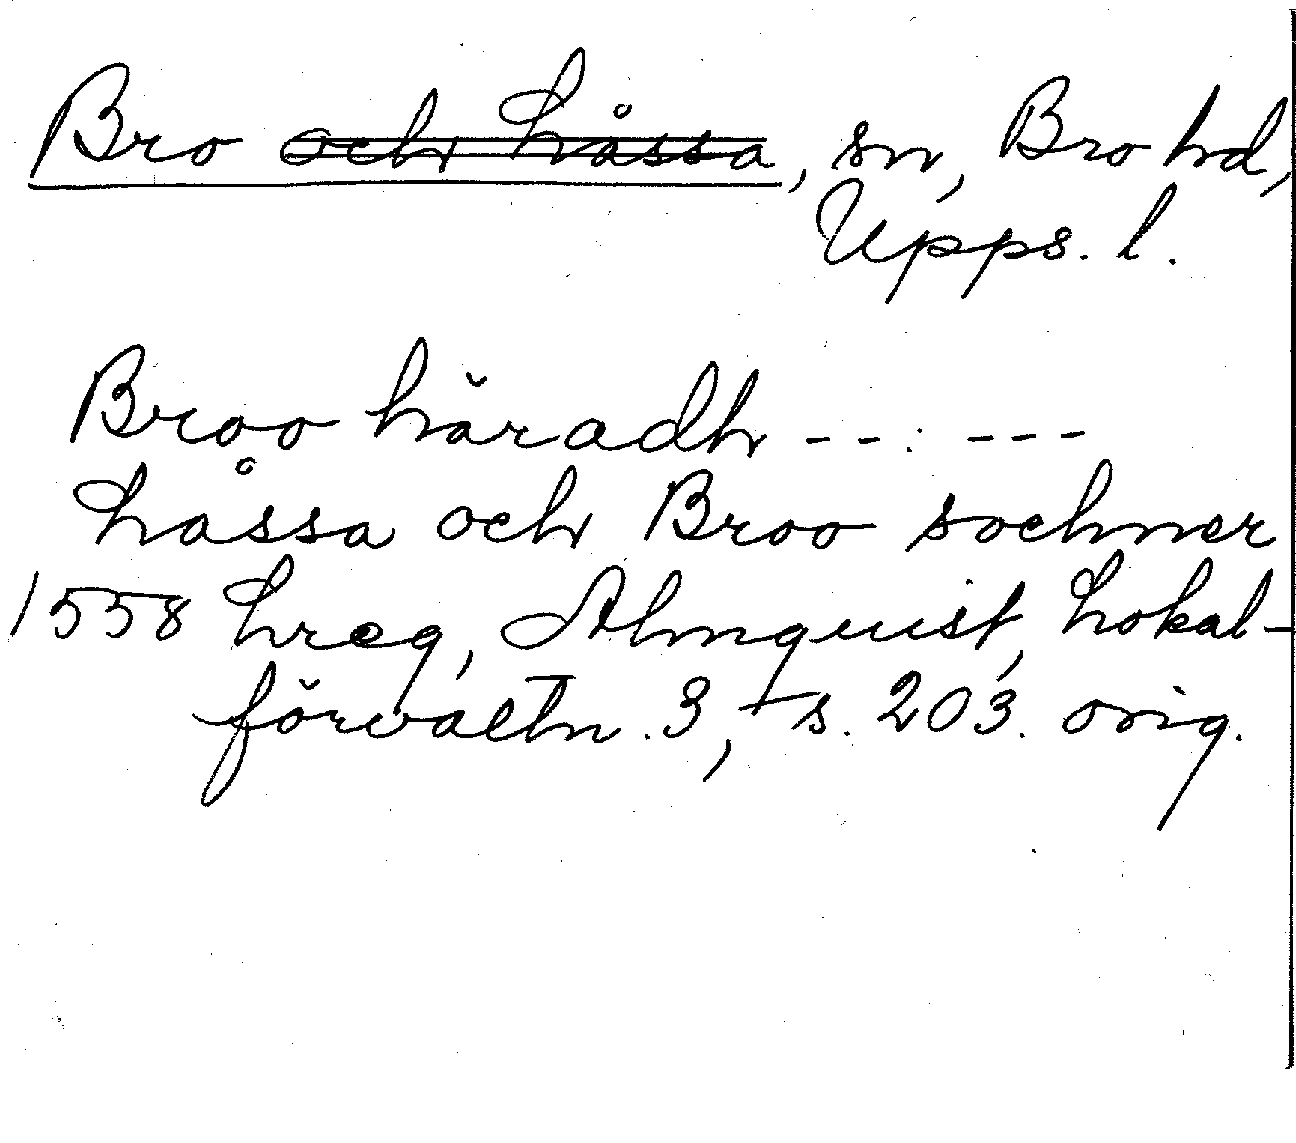 Bro och Låssa, sn, Bro hd,
Upps. l.
Broo häradh --- ---
Låssa och Broo sochner
1558 Lreg, Almquist, Lokal-
förvaltn. 3, s. 203. orig.